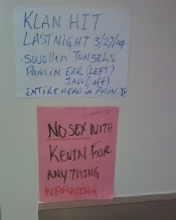 KLAN HIT
LAST NIGHT 3/27/14
- SWOLLEN TUNSELS
Pain in EAR (LEFT)
JAW (Left)
ENTIRE HEAD in PAIN
NO SEX WITH
KEVIN FOR
ANY THING
WARNING